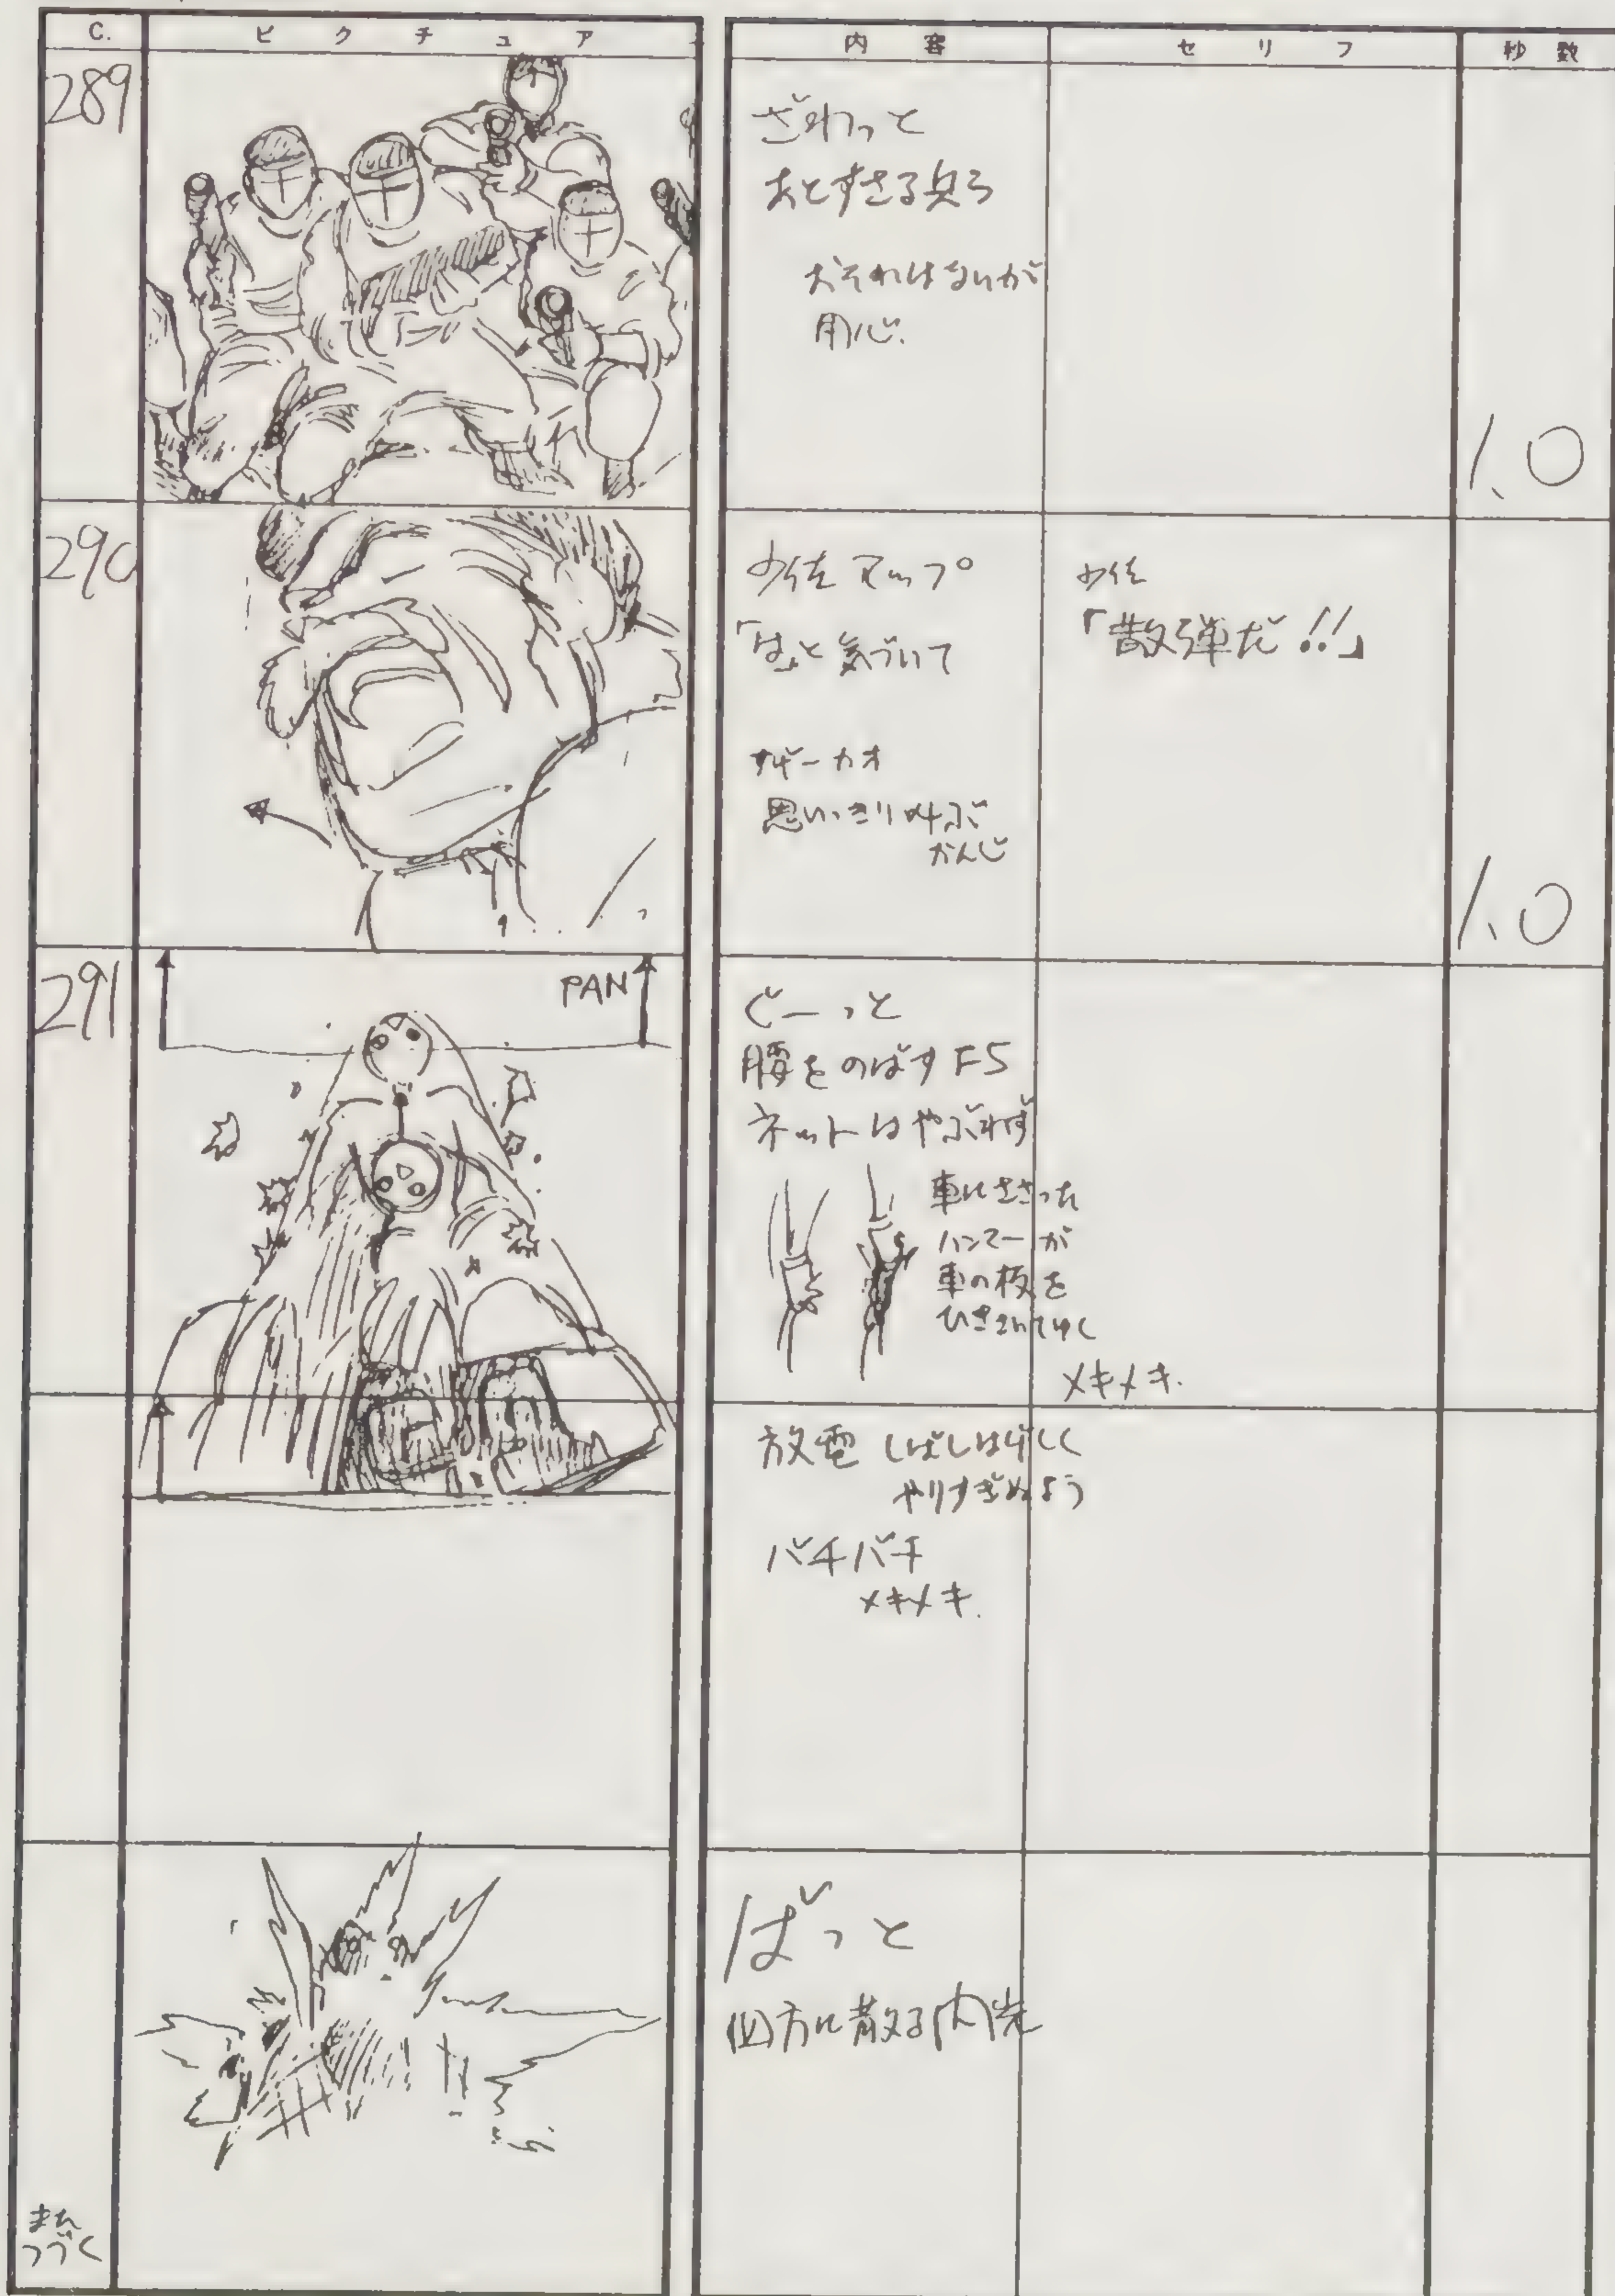 C. ピクチュア 内容 セリフ 秒数
289
ざわっと
あとずさる兵ら
おそれはないが
用心.
1.0
290
少佐 アップ
「はっと気づいて
少佐
「散弾だ!!」
カオ
思いっきり叫ぶ
かんじ
1.0
291
PAN
ぐーっと
腰をのばすF5
ネットはやぶれず
車にささった
ハンマーが
車の板を
ひきさいてゆく
メキメキ.
放電 しばしはげしく
やりすぎぬよう
バチバチ
メキメキ.
ばっと
四方に散る閃光
まだ
つづく